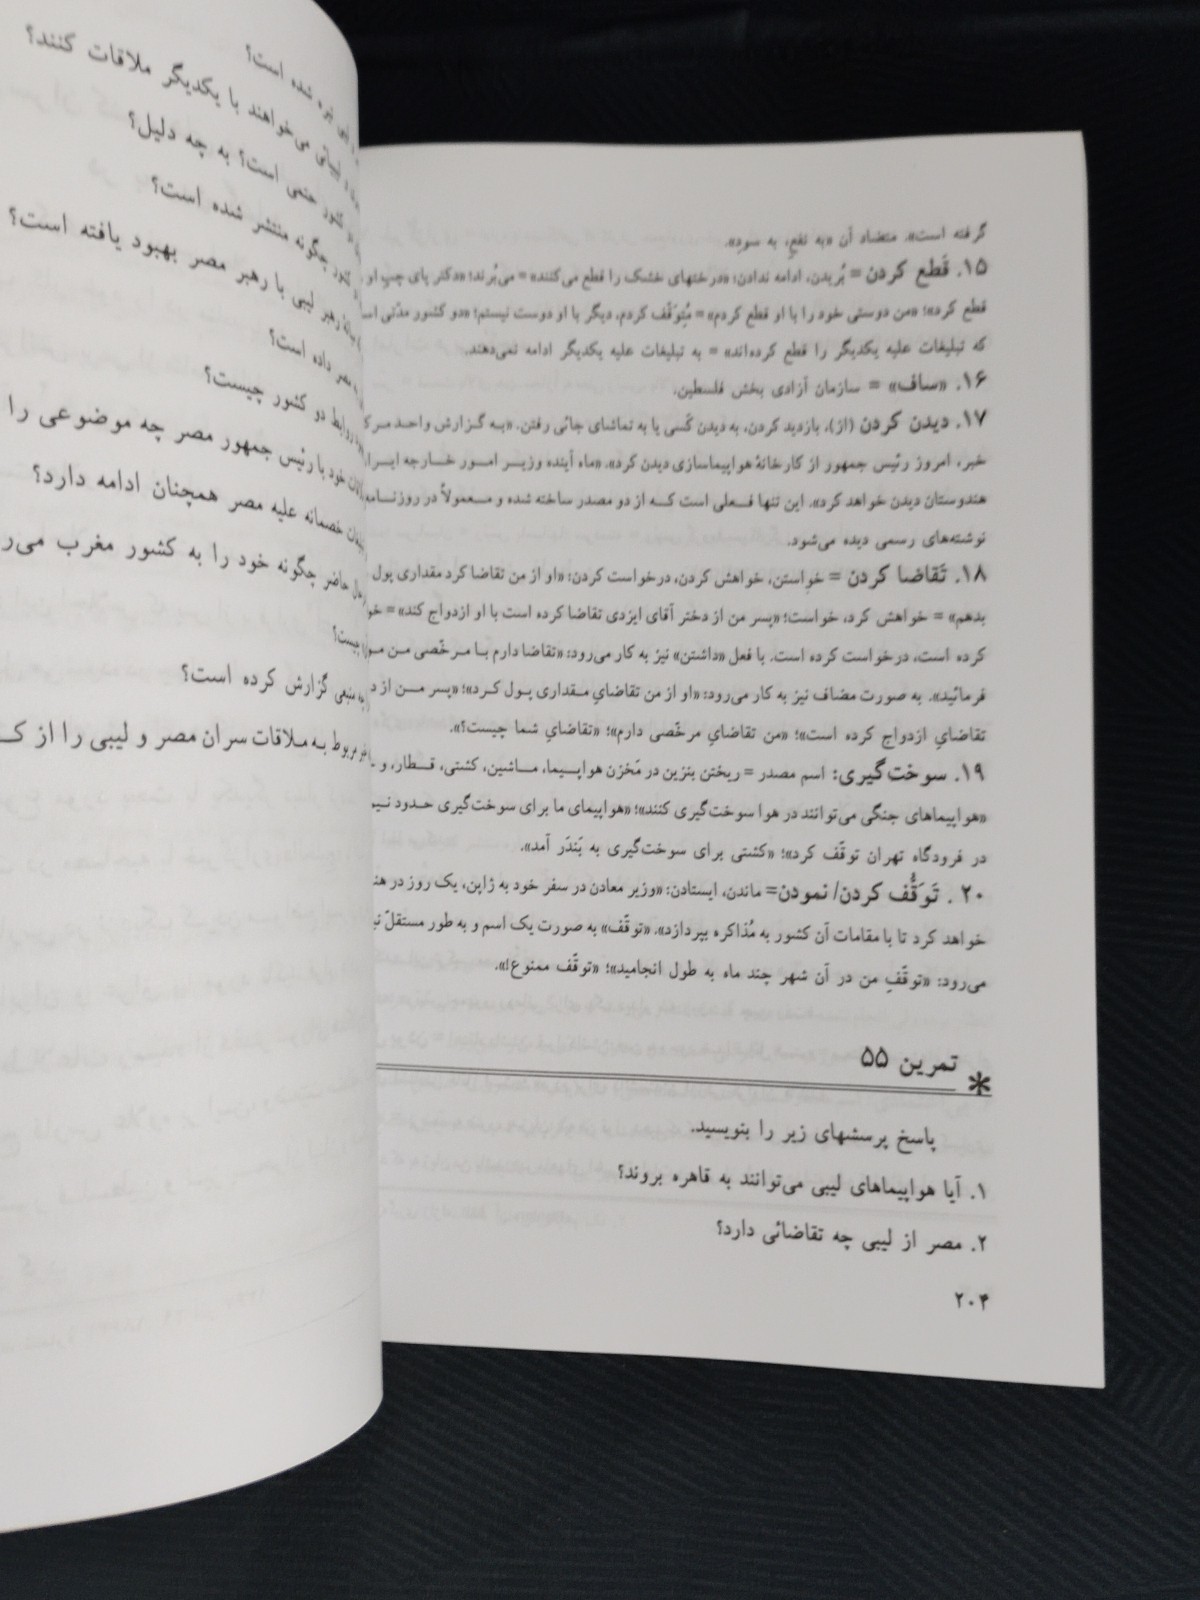 گرفته است». متضاد آن «به نفعِ، به سودِ».
۱۵. قَطع کردن = بُریدن، ادامه ندادن: «درختهای خشک را قطع می‌کنند» = می‌بُرند؛ «دکتر پای چپ او
قطع کرد»؛ «من دوستی خود را با او قطع کردم» = مُتِوَقّف کردم، دیگر با او دوست نیستم؛ «دو کشور مدّتی
که تبلیغات علیه یکدیگر را قطع کرده‌اند» = به تبلیغات علیه یکدیگر ادامه نمی‌دهند.
۱۶. «ساف» = سازمان آزادی بخش فلسطین.
۱۷. دیدن کردن (از)، بازدید کردن، به دیدن کَسی یا به تماشای جائی رفتن. «به گزارش واحد
خبر، امروز رئیس جمهور از کارخانهٔ هواپیماسازی دیدن کرد». «ماه آینده وزیر امور خارجه
هندوستان دیدن خواهد کرد». این تنها فعلی است که از دو مصدر ساخته شده و معمولاً در
نوشته‌های رسمی دیده می‌شود.
۱۸. تَقاضا کردن = خواستن، خواهش کردن، درخواست کردن: «او از من تقاضا کرد مقداری پول
بدهم» = خواهش کرد، خواست؛ «پسر من از دختر آقای ایزدی تقاضا کرده است با او ازدواج کند» =
کرده است، درخواست کرده است. با فعل «داشتن» نیز به کار می‌رود: «تقاضا دارم با مرخّصی من
فرمائید». به صورت مضاف نیز به کار می‌رود: «او از من تقاضایِ مقداری پول کرد»؛ «پسر من از
تقاضایِ ازدواج کرده است»؛ «من تقاضایِ مرخّصی دارم»؛ «تقاضایِ شما چیست؟».
۱۹. سوخت‌گیری: اسم مصدر = ریختن بنزین در مَخزن هواپیما، ماشین، کشتی، قطار، و
«هواپیماهای جنگی می‌توانند در هوا سوخت‌گیری کنند»؛ «هواپیمای ما برای سوخت‌گیری حدود
در فرودگاه تهران توقّف کرد»؛ «کشتی برای سوخت‌گیری به بَندَر آمد».
۲۰ . تَوَقُّف کردن/ نمودن= ماندن، ایستادن: «وزیر معادن در سفر خود به ژاپن، یک روز در
خواهد کرد تا با مقامات آن کشور به مُذاکره بپردازد». «توقّف» به صورت یک اسم و به طور مستقلّ
می‌رود: «توقّفِ من در آن شهر چند ماه به طول انجامید»؛ «توقّف ممنوع!».
* تمرین ۵۵
پاسخ پرسشهای زیر را بنویسید.
۱. آیا هواپیماهای لیبی می‌توانند به قاهره بروند؟
۲. مصر از لیبی چه تقاضائی دارد؟
۲۰۴
تیره شده است؟
می‌خواهند با یکدیگر ملاقات کنند؟
کشور حتمی است؟ به چه دلیل؟
چگونه منتشر شده است؟
رهبر لیبی با رهبر مصر بهبود یافته است؟
مصر داده است؟
روابط دو کشور چیست؟
خود با رئیس جمهور مصر چه موضوعی را
خصمانه علیه مصر همچنان ادامه دارد؟
حاضر چگونه خود را به کشور مغرب
چیست؟
منبعی گزارش کرده است؟
مربوط به ملاقات سران مصر و لیبی را از